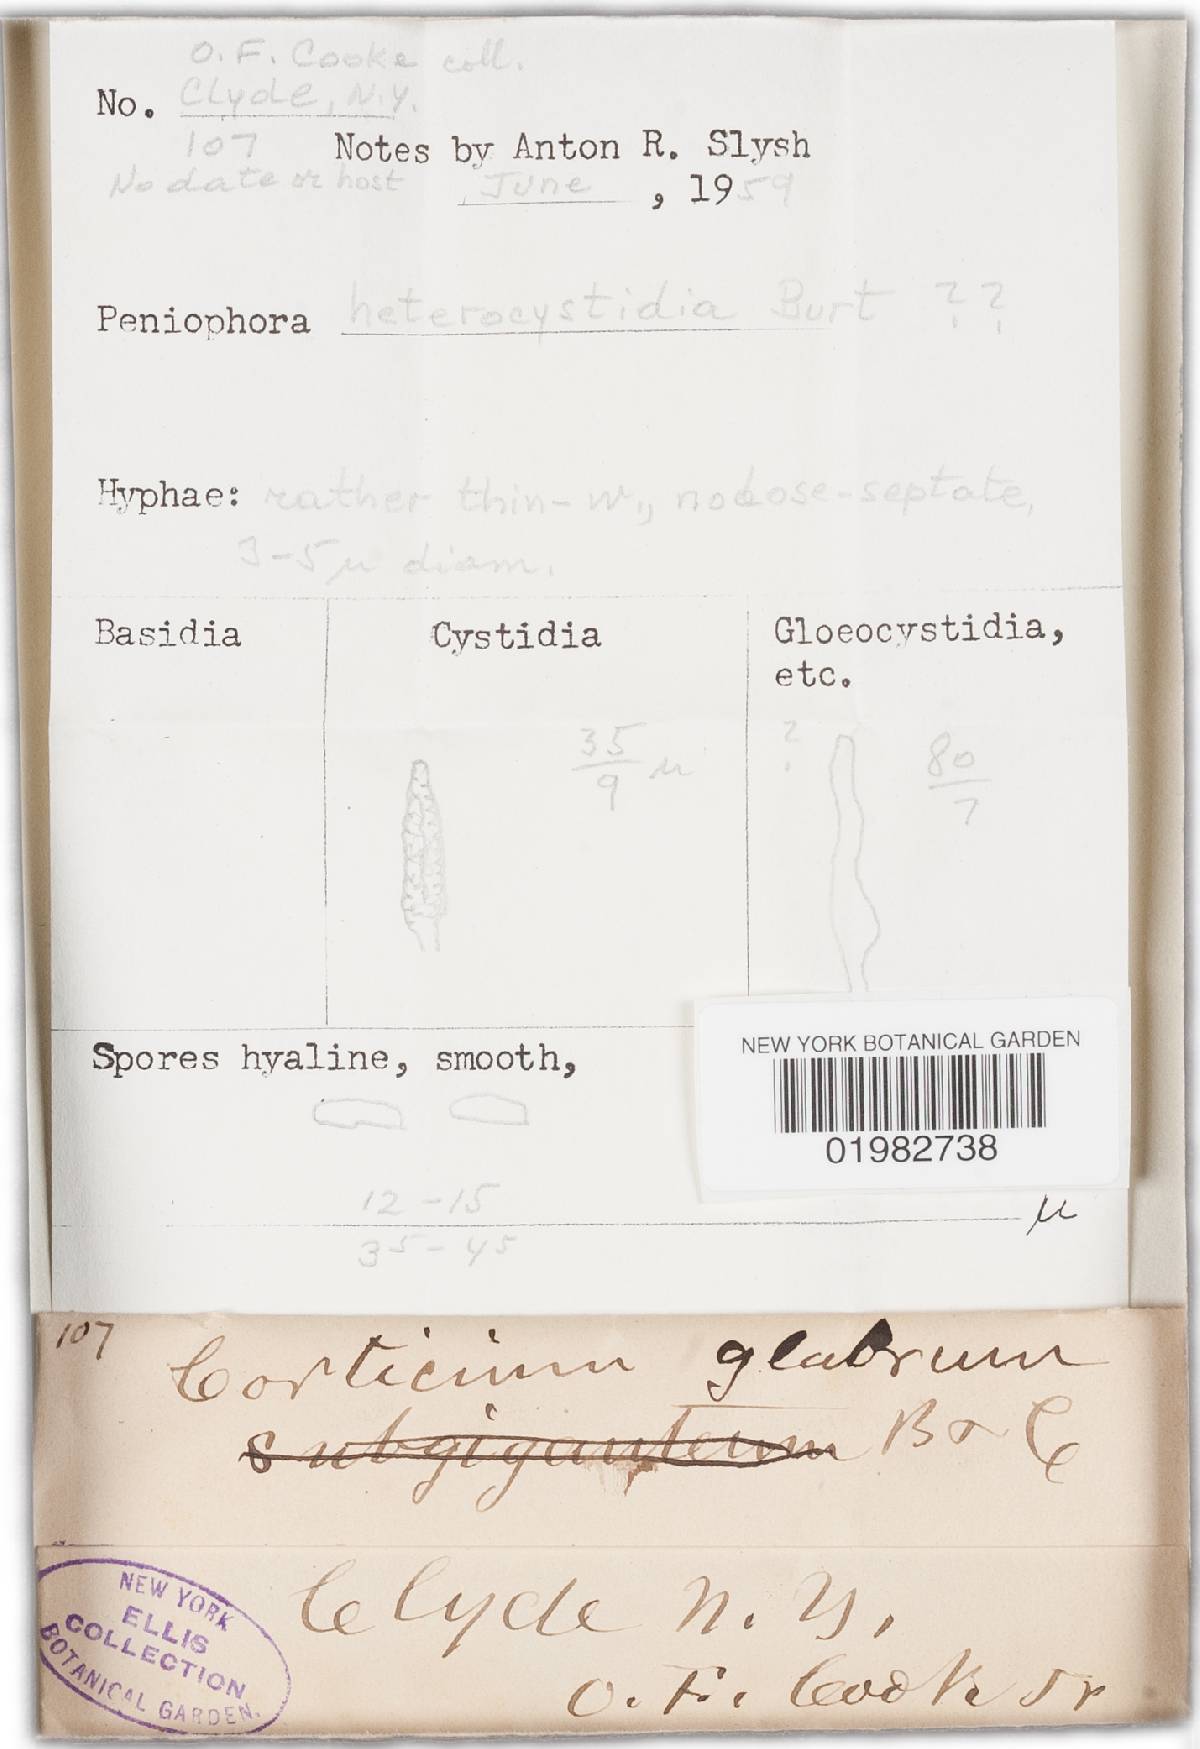 O. F. Cooke coll.
No. Clyde, N.Y.
107 Notes by Anton R. Slysh
No date or host , June , 1959
Peniophora heterocystidia Burt ??
Hyphae: rather thin-w., nodose-septate,
3-5 µ diam.
Basidia Cystidia Gloeocystidia,
etc.
35 ? 80
9 µ 7
NEW YORK BOTANICAL GARDEN
Spores hyaline, smooth,
01982738
12-15
µ
35-45
107
Corticium glabrum
subgiganteum B & C
NEW YORK
ELLIS
COLLECTION
BOTANICAL GARDEN.
Clyde N. Y.
O. F. Cook Jr